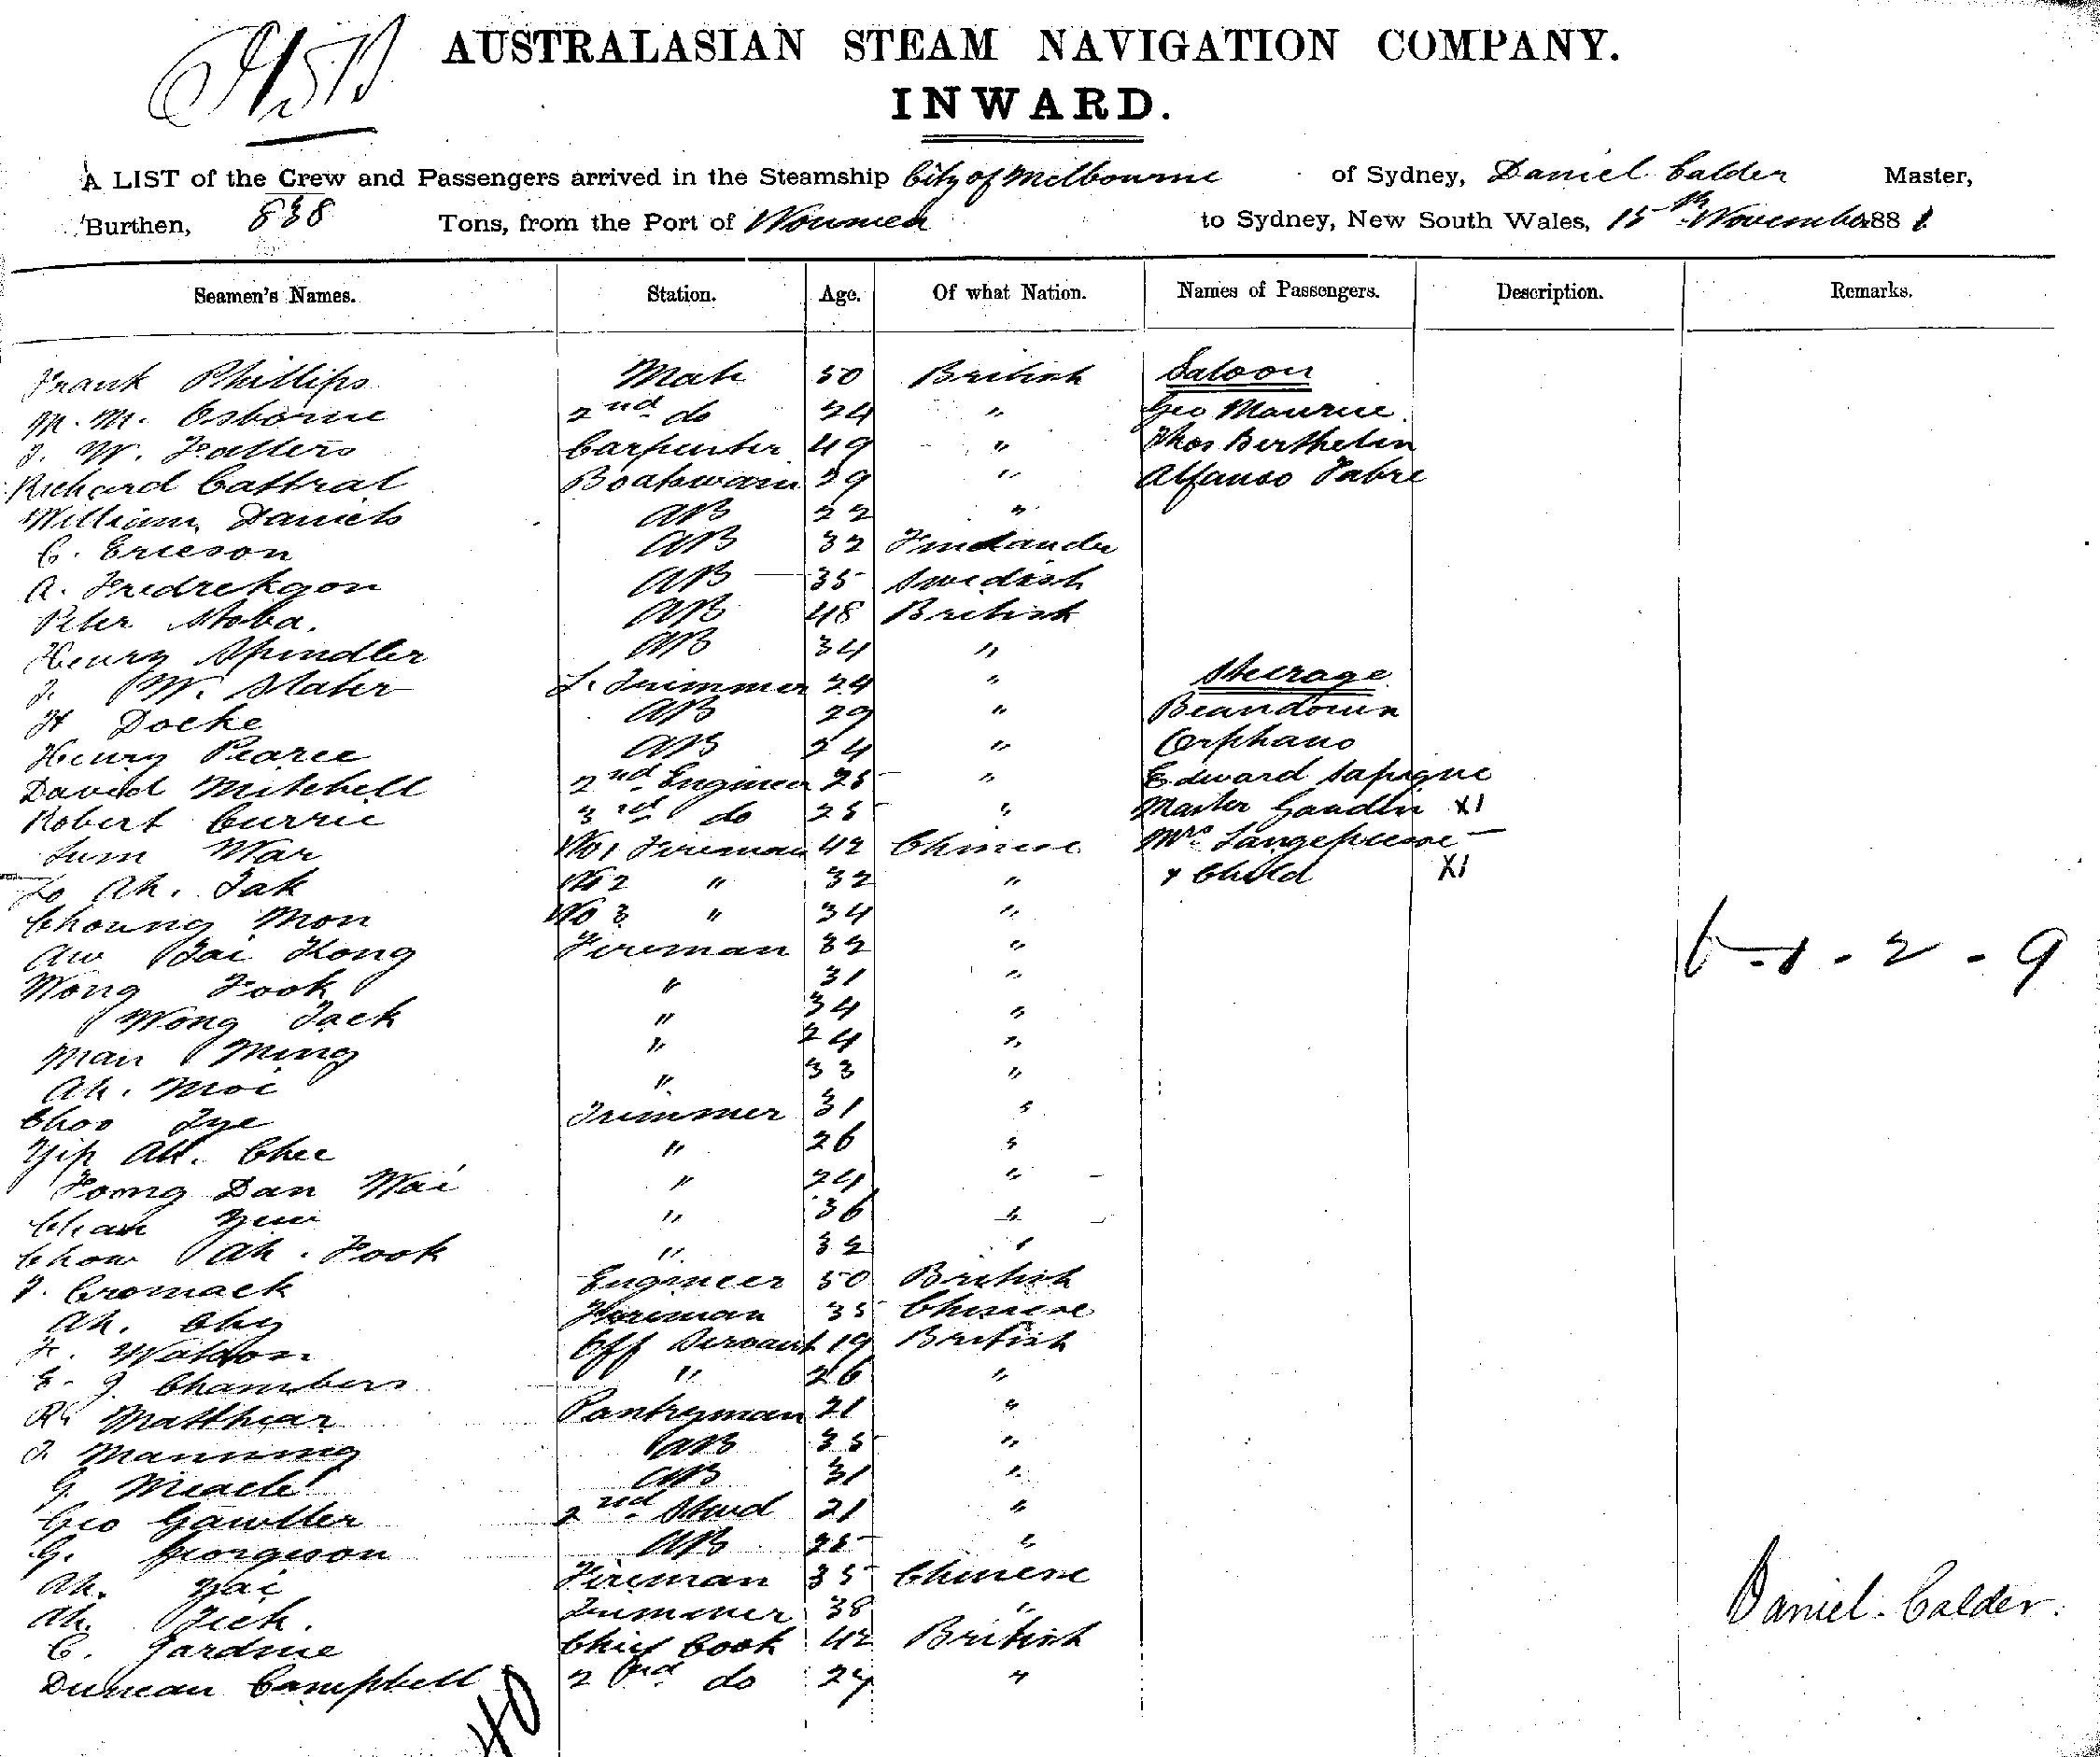 AUSTRALASIAN STEAM NAVIGATION COMPANY.
INWARD.
A LIST of the Crew and Passengers arrived in the Steamship City of Melbourne of Sydney, Daniel Calder Master,
Burthen, 838 Tons, from the Port of Noumea to Sydney, New South Wales, 15th November 1881
Seamen's Names. Station. Age. Of what Nation. Names of Passengers. Description. Remarks.
Frank Phillips Mate 50 British Saloon
M. M. Osborne 2nd do 24 " Geo Maurice
J. W. Fatters Carpenter 49 " Thos Berthelin
Richard Cattral Boatswain 29 " Alfanso Fabre
William Daniels AB 22 "
C. Ericson AB 32 Finlander
A. Fredrekson AB 35 Swedish
Peter Stoba. AB 48 British
Henry Spindler AB 34 "
J. W. Slater L. Trimmer 24 " Steerage
H Docke AB 29 " Beandouin
Henry Pearce AB 24 " Orphano
David Mitchell 2nd Engineer 25 " Edward
Robert Currie 3rd do 25 " Master Gaudin X1
Sum War No 1 Fireman 42 Chinese Mrs
Lo Ah. Tak No 2 " 32 " & Child X1
Choung Mon No 3 " 34 "
Aw Tai Hong Fireman 32 "
Wong Fook " 31 "
Wong Jack " 34 "
Man Ming " 24 "
Ah. Moi " 33 "
Choo Lye Trimmer 31 "
Yip Ah. Chee " 26 "
Foong Dan Wai " 24 "
Chan Yew " 36 "
Chow Ah. Fook " 32 "
J. Cromack Engineer 50 British
Ah. Chy Fireman 35 Chinese
F. Watson Off Servant 19 British
E. J. Chambers " 26 "
Matthiar Pantryman 21 "
J. Manning AB 35 "
G. Meacle AB 31 "
Geo Gawtler 2nd Stwd 21 "
G. Georgeson AB 25 "
Ah. Yai Fireman 35 Chinese
Ah. Tick. Trimmer 38 "
C. Jardine Chief Cook 42 British
Duncan Campbell 2nd do 24 "
40
6-1-2-9
Daniel Calder.